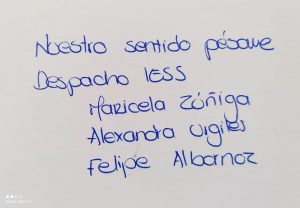 Nuestro sentido pésame
Despacho IESS
Maricela Zúñiga
Alexandra Vigiles
Felipe Albornoz